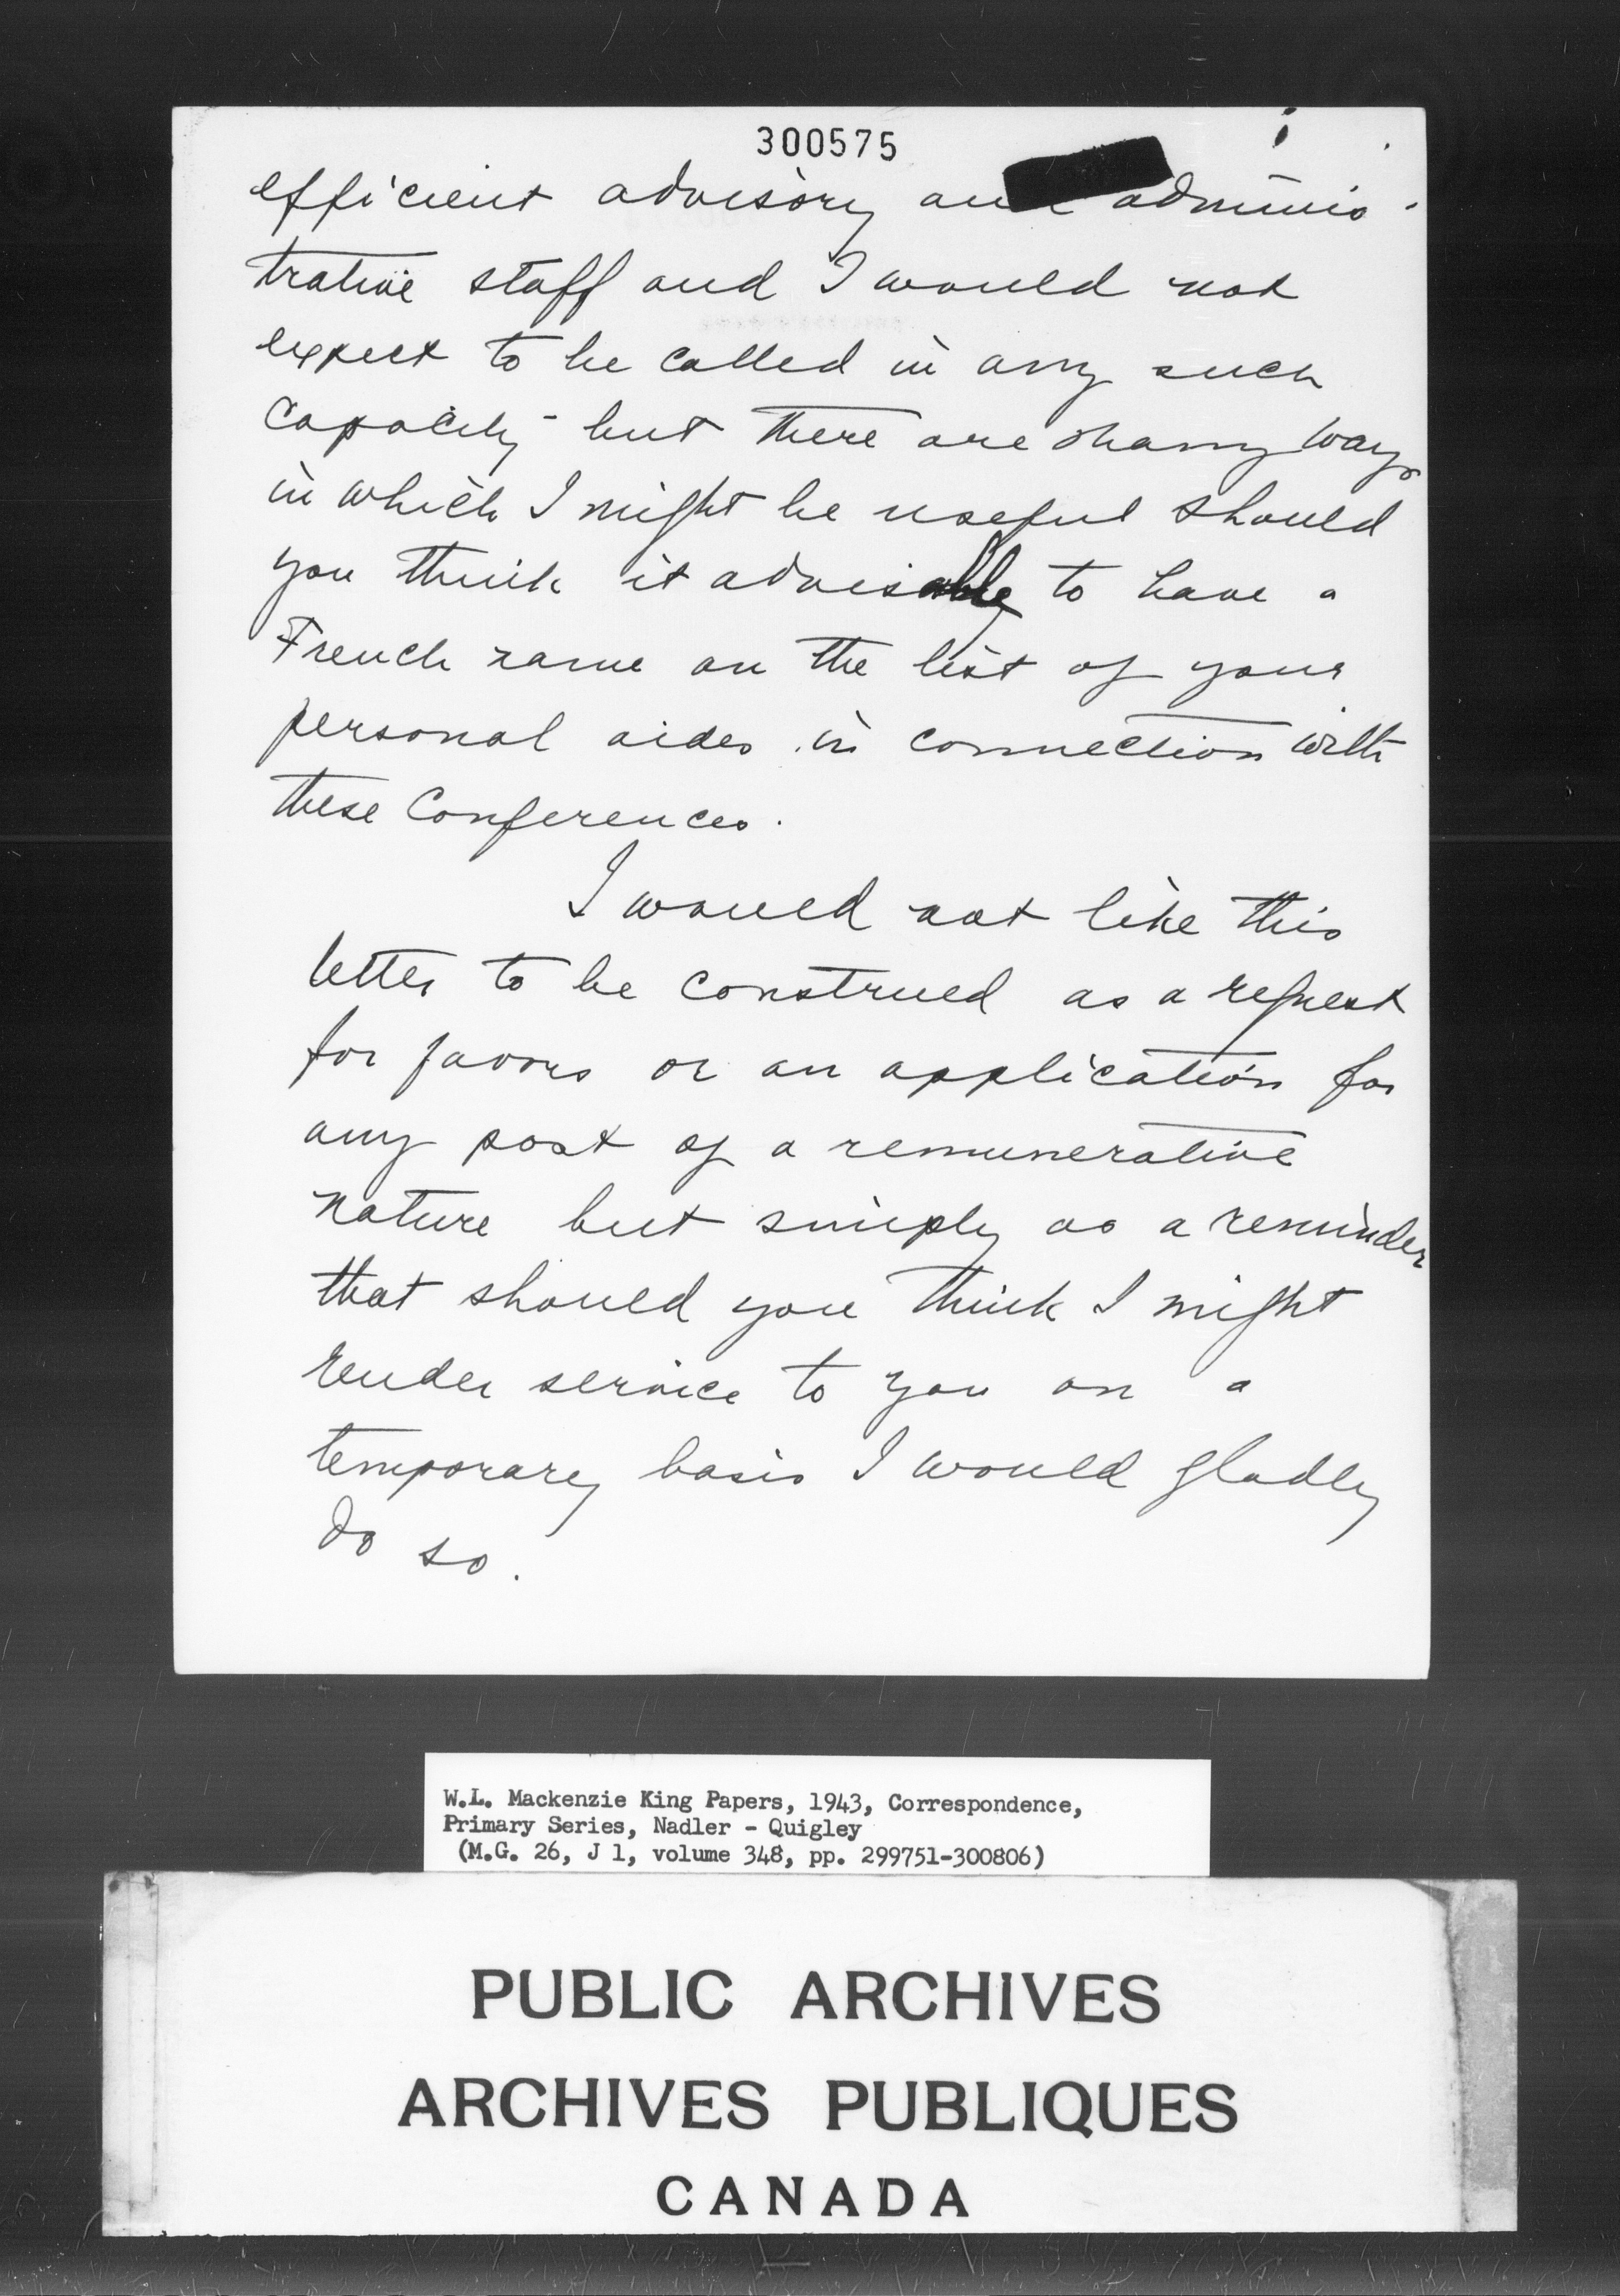 300575
efficient advisory and adminis-
trative staff and I would not
expect to be called in any such
capacity - but there are many ways
in which I might be useful should
you think it advisable to have a
French name on the list of your
personal aides in connection with
these Conferences.
I would not like this
letter to be construed as a request
for favors or an application for
any post of a remunerative
nature but simply as a reminder
that should you think I might
render service to you on a
temporary basis I would gladly
do so.
W.L. Mackenzie King Papers, 1943, Correspondence,
Primary Series, Nadler - Quigley
(M.G. 26, J 1, volume 348, pp. 299751-300806)
PUBLIC ARCHIVES
ARCHIVES PUBLIQUES
CANADA